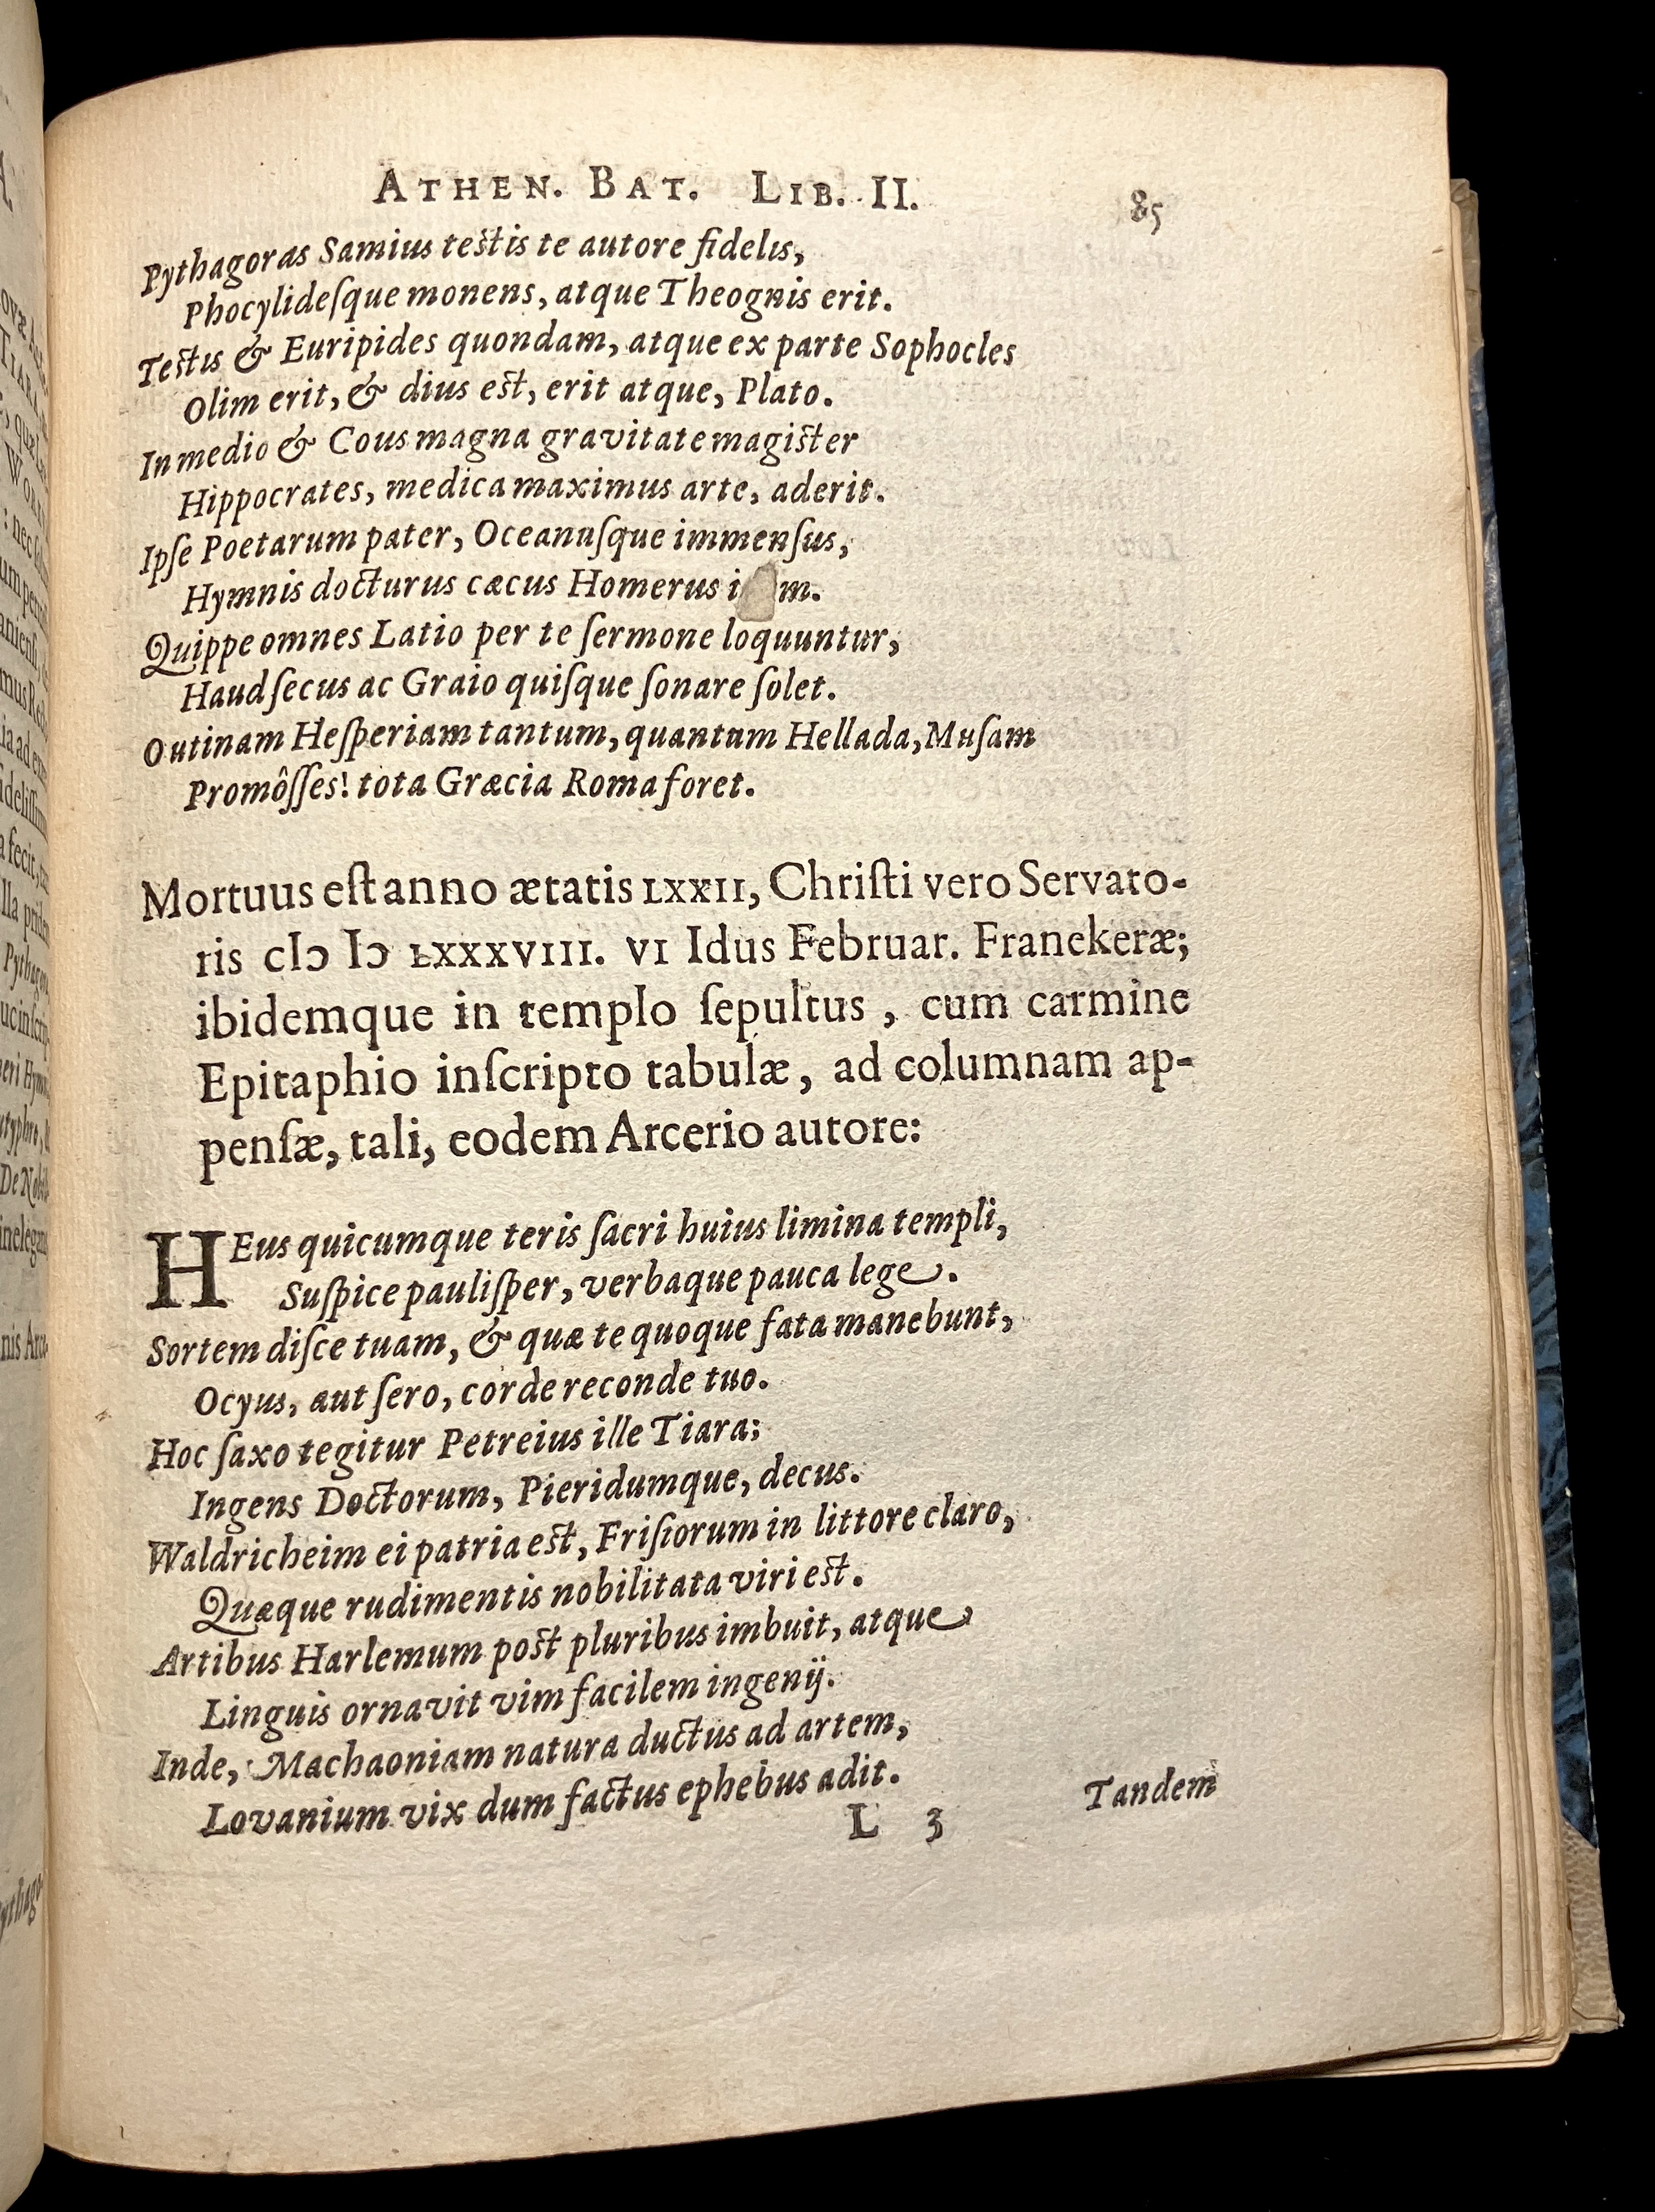 ATHEN. BAT. LIB. II. 85
Pythagoras Samius testis te autore fidelis,
Phocylideſque monens, atque Theognis erit.
Testis & Euripides quondam, atque ex parte Sophocles
Olim erit, & dius est, erit atque, Plato.
In medio & Cous magna gravitate magister
Hippocrates, medica maximus arte, aderit.
Ipſe Poetarum pater, Oceanuſque immenſus,
Hymnis docturus cæcus Homerus
Quippe omnes Latio per te ſermone loquuntur,
Haud ſecus ac Graio quiſque ſonare ſolet.
O utinam Heſperiam tantum, quantum Hellada, Muſam
Promôſſes! tota Græcia Roma foret.
Mortuus eſt anno ætatis LXXII, Chriſti vero Servato-
ris cIↄ Iↄ LXXXVIII. VI Idus Februar. Franekeræ;
ibidemque in templo ſepultus, cum carmine
Epitaphio inſcripto tabulæ, ad columnam ap-
penſæ, tali, eodem Arcerio autore:
HEus quicumque teris ſacri huius limina templi,
Suſpice pauliſper, verbaque pauca lege.
Sortem diſce tuam, & quæ te quoque fata manebunt,
Ocyus, aut ſero, corde reconde tuo.
Hoc ſaxo tegitur Petreius ille Tiara;
Ingens Doctorum, Pieridumque, decus.
Waldricheim ei patria est, Friſiorum in littore claro,
Quæque rudimentis nobilitata viri est.
Artibus Harlemum post pluribus imbuit, atque
Linguis ornavit vim facilem ingenij.
Inde, Machaoniam natura ductus ad artem,
Lovanium vix dum factus ephebus adit.
L 3 Tandem